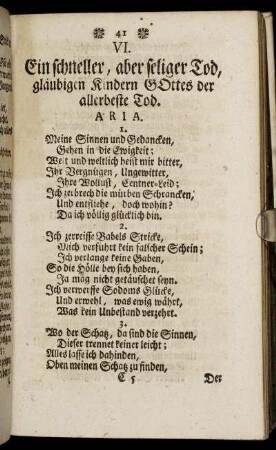 * 41 *
VI.
Ein schneller, aber seliger Tod,
gläubigen Kindern GOttes der
allerbeste Tod.
ARIA.
1.
Meine Sinnen und Gedancken,
Gehen in die Ewigkeit;
Welt und weltlich heist mir bitter,
Ihr Vergnügen, Ungewitter,
Ihre Wollust, Centner-Leid;
Ich zerbrech die mürben Schrancken,
Und entfliehe, doch wohin?
Da ich völlig glücklich bin.
2.
Ich zerreisse Babels Stricke,
Mich verführt kein falscher Schein;
Ich verlange keine Gaben,
So die Hölle bey sich haben,
Ja mag nicht getäuschet seyn.
Ich verwerffe Sodoms Glücke,
Und erwehl, was ewig währt,
Was kein Unbestand verzehrt.
3.
Wo der Schatz, da sind die Sinnen,
Dieser trennet keiner leicht;
Alles lasse ich dahinden,
Oben meinen Schatz zu finden,
C 5 Der